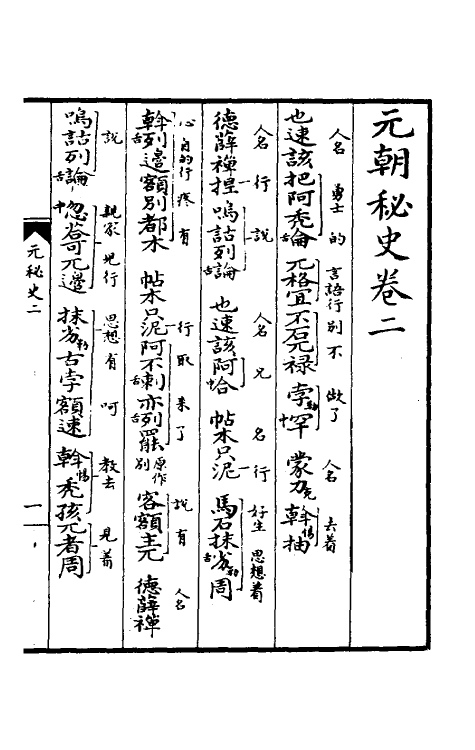 元朝秘史卷二
人名 勇士 的 言語行 別 不 做了 人名 去着
也速該把阿禿舌侖 兀格宜 不石兀禄 孛勒中罕 蒙力克 斡惕抽
人名 行 說 人名 兄 名 行 好生 思想着
德薛禪捏 嗚詁列舌論 也速該阿中合 帖木只泥 馬石抹舌
心 自的行 疼 有 行 取 來了 說 有 人名
斡舌列邊額別都木 帖木只泥阿不舌剌亦舌列罷 原作別 客額主兀 德薛禪
說 親家 兒行 思想有 呵 教去 見着
嗚詁列舌論 中忽荅可兀邊 抹 古孛額速 斡惕禿孩 兀者周
元秘史二
一